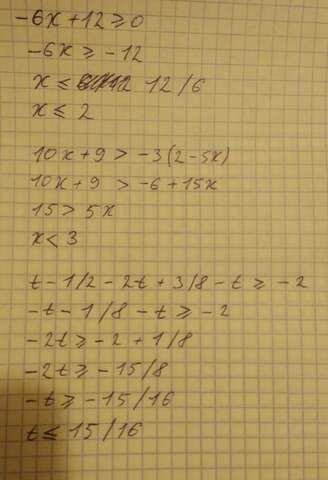 -6x + 12 ⩾ 0
-6x ⩾ -12
x ⩽ 12/6
x ⩽ 2
10x + 9 > -3(2 - 5x)
10x + 9 > -6 + 15x
15 > 5x
x < 3
t - 1/2 - 2t + 3/8 - t ⩾ -2
-t - 1/8 - t ⩾ -2
-2t ⩾ -2 + 1/8
-2t ⩾ -15/8
-t ⩾ -15/16
t ⩽ 15/16